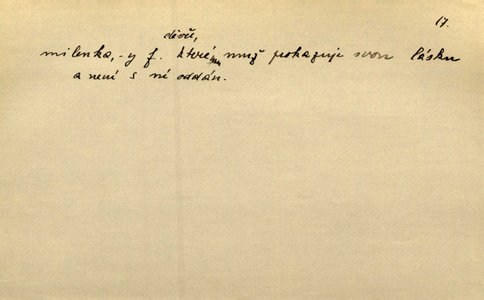 17.
divč,
milenka, -y f. které muž prokazuje svou lásku
a není s ní oddán.